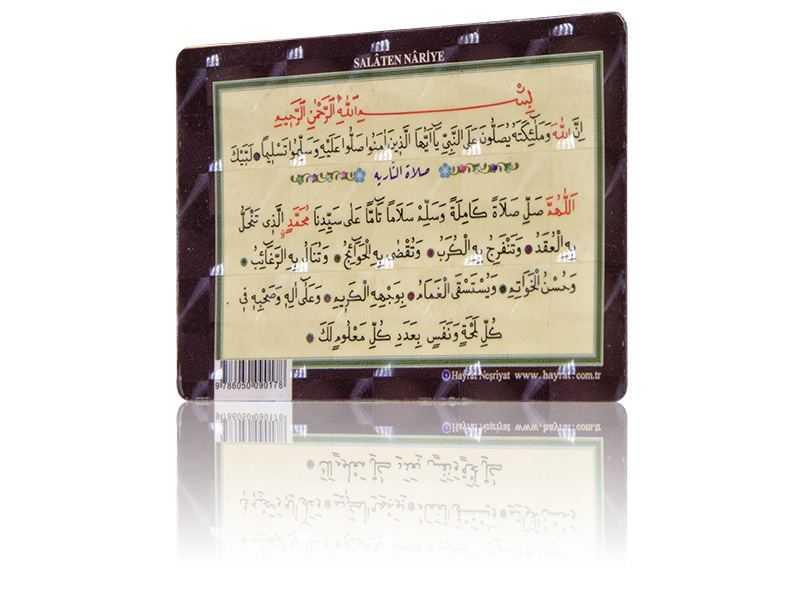 SALÂTEN NÂRİYE
بِسْمِ اللهِ الرَّحْمٰنِ الرَّحِيمِ
اِنَّ اللهَ وَمَلٰٓئِكَتَهُ يُصَلُّونَ عَلَى النَّبِيِّ يَٓا اَيُّهَا الَّذِينَ اٰمَنُوا صَلُّوا عَلَيْهِ وَسَلِّمُوا تَسْلِيمًا لَبَّيْكَ
صلاة النّاريه
اَللّٰهُمَّ صَلِّ صَلَاةً كَامِلَةً وَسَلِّمْ سَلَامًا تَٓامًّا عَلٰى سَيِّدِنَا مُحَمَّدٍ الَّذِى تَنْحَلُّ
بِهِ الْعُقَدُ وَتَنْفَرِجُ بِهِ الْكُرَبُ وَتُقْضٰى بِهِ الْحَوَٓائِجُ وَتُنَالُ بِهِ الرَّغَٓائِبُ
وَحُسْنُ الْخَوَاتِمِ وَيُسْتَسْقَى الْغَمَامُ بِوَجْهِهِ الْكَرِيمِ وَعَلٰٓى اٰلِهِ وَصَحْبِهِ فِى
كُلِّ لَمْحَةٍ وَنَفَسٍ بِعَدَدِ كُلِّ مَعْلُومٍ لَكَ
9 786050 090178
Hayrat Neşriyat www.hayrat.com.tr